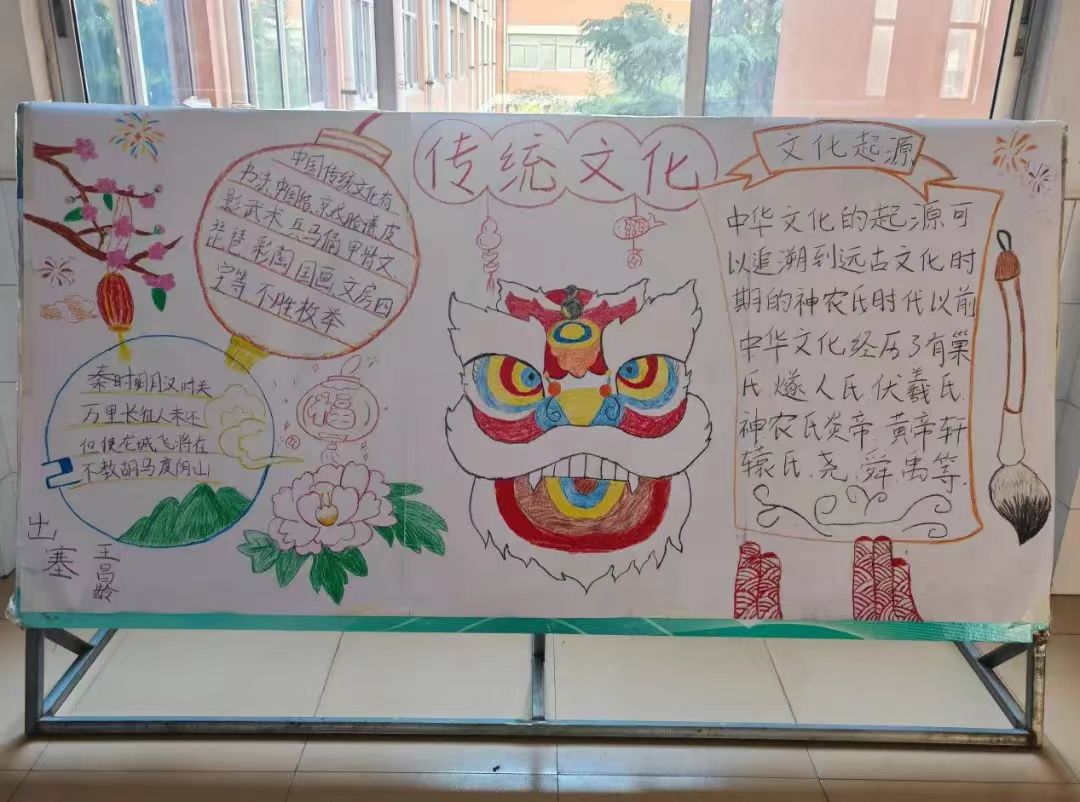 传统文化
中国传统文化有
书法 中国结 京戏脸谱 皮
影 武术 兵马俑 甲骨文
琵琶 彩陶 国画 文房四
宝等 不胜枚举
秦时明月汉时关
万里长征人未还
但使龙城飞将在
不教胡马度阴山
出塞
王昌龄
福
文化起源
中华文化的起源可
以追溯到远古文化时
期的神农氏时代以前
中华文化经历了有巢
氏.燧人氏.伏羲氏.
神农氏炎帝.黄帝轩
辕氏.尧.舜.禹等.